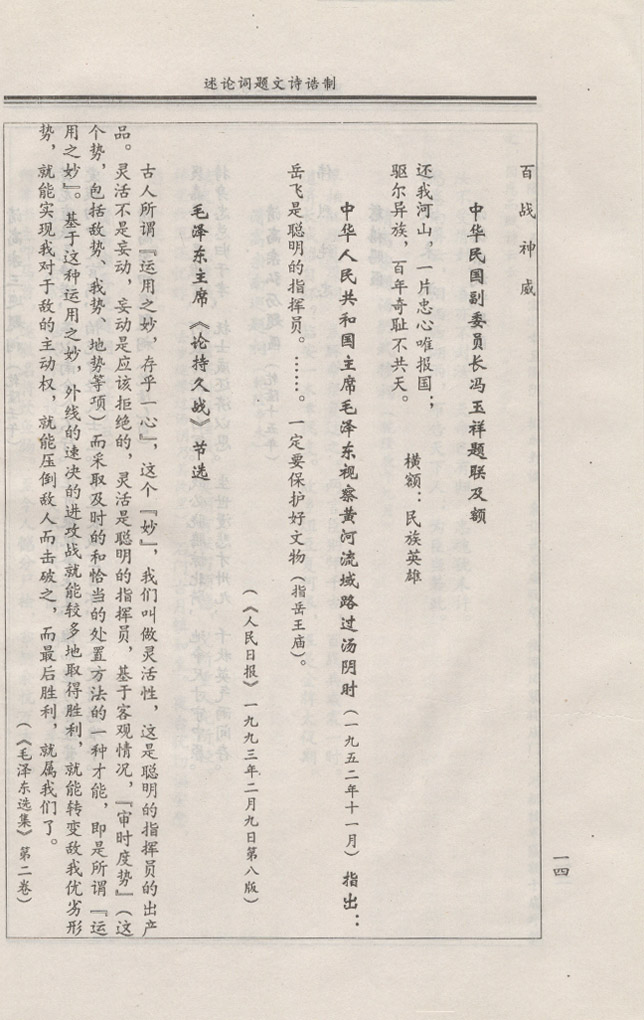 制诰诗文题词论述
百战神威
中华民国副委员长冯玉祥题联及额
还我河山，一片忠心唯报国；
驱尔异族，百年奇耻不共天。
横额：民族英雄
中华人民共和国主席毛泽东视察黄河流域路过汤阴时（一九五二年十一月）指出：
岳飞是聪明的指挥员。……。一定要保护好文物（指岳王庙）。
（《人民日报》一九九三年二月九日第八版）
毛泽东主席《论持久战》节选
古人所谓『运用之妙，存乎一心』，这个『妙』，我们叫做灵活性，这是聪明的指挥员的出产
品。灵活不是妄动，妄动是应该拒绝的，灵活是聪明的指挥员，基于客观情况，『审时度势』（这
个势，包括敌势、我势、地势等项）而采取及时的和恰当的处置方法的一种才能，即是所谓『运
用之妙』。基于这种运用之妙，外线的速决的进攻战就能较多地取得胜利，就能转变敌我优劣形
势，就能实现我对于敌的主动权，就能压倒敌人而击破之，而最后胜利，就属我们了。
（《毛泽东选集》第二卷）
一四